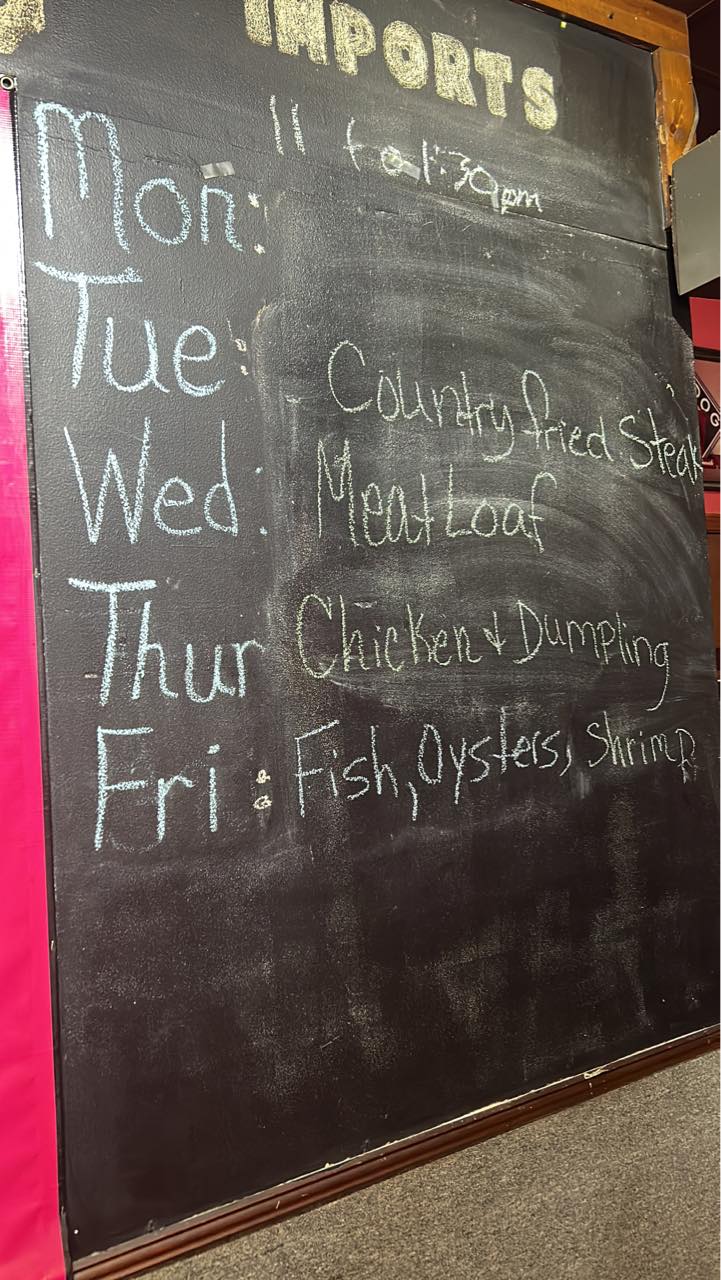 IMPORTS
11 to 1:30pm
Mon:
Tue: Country fried Steak
Wed: Meat Loaf
Thur Chicken & Dumpling
Fri: Fish, Oysters, Shrimp
DOG